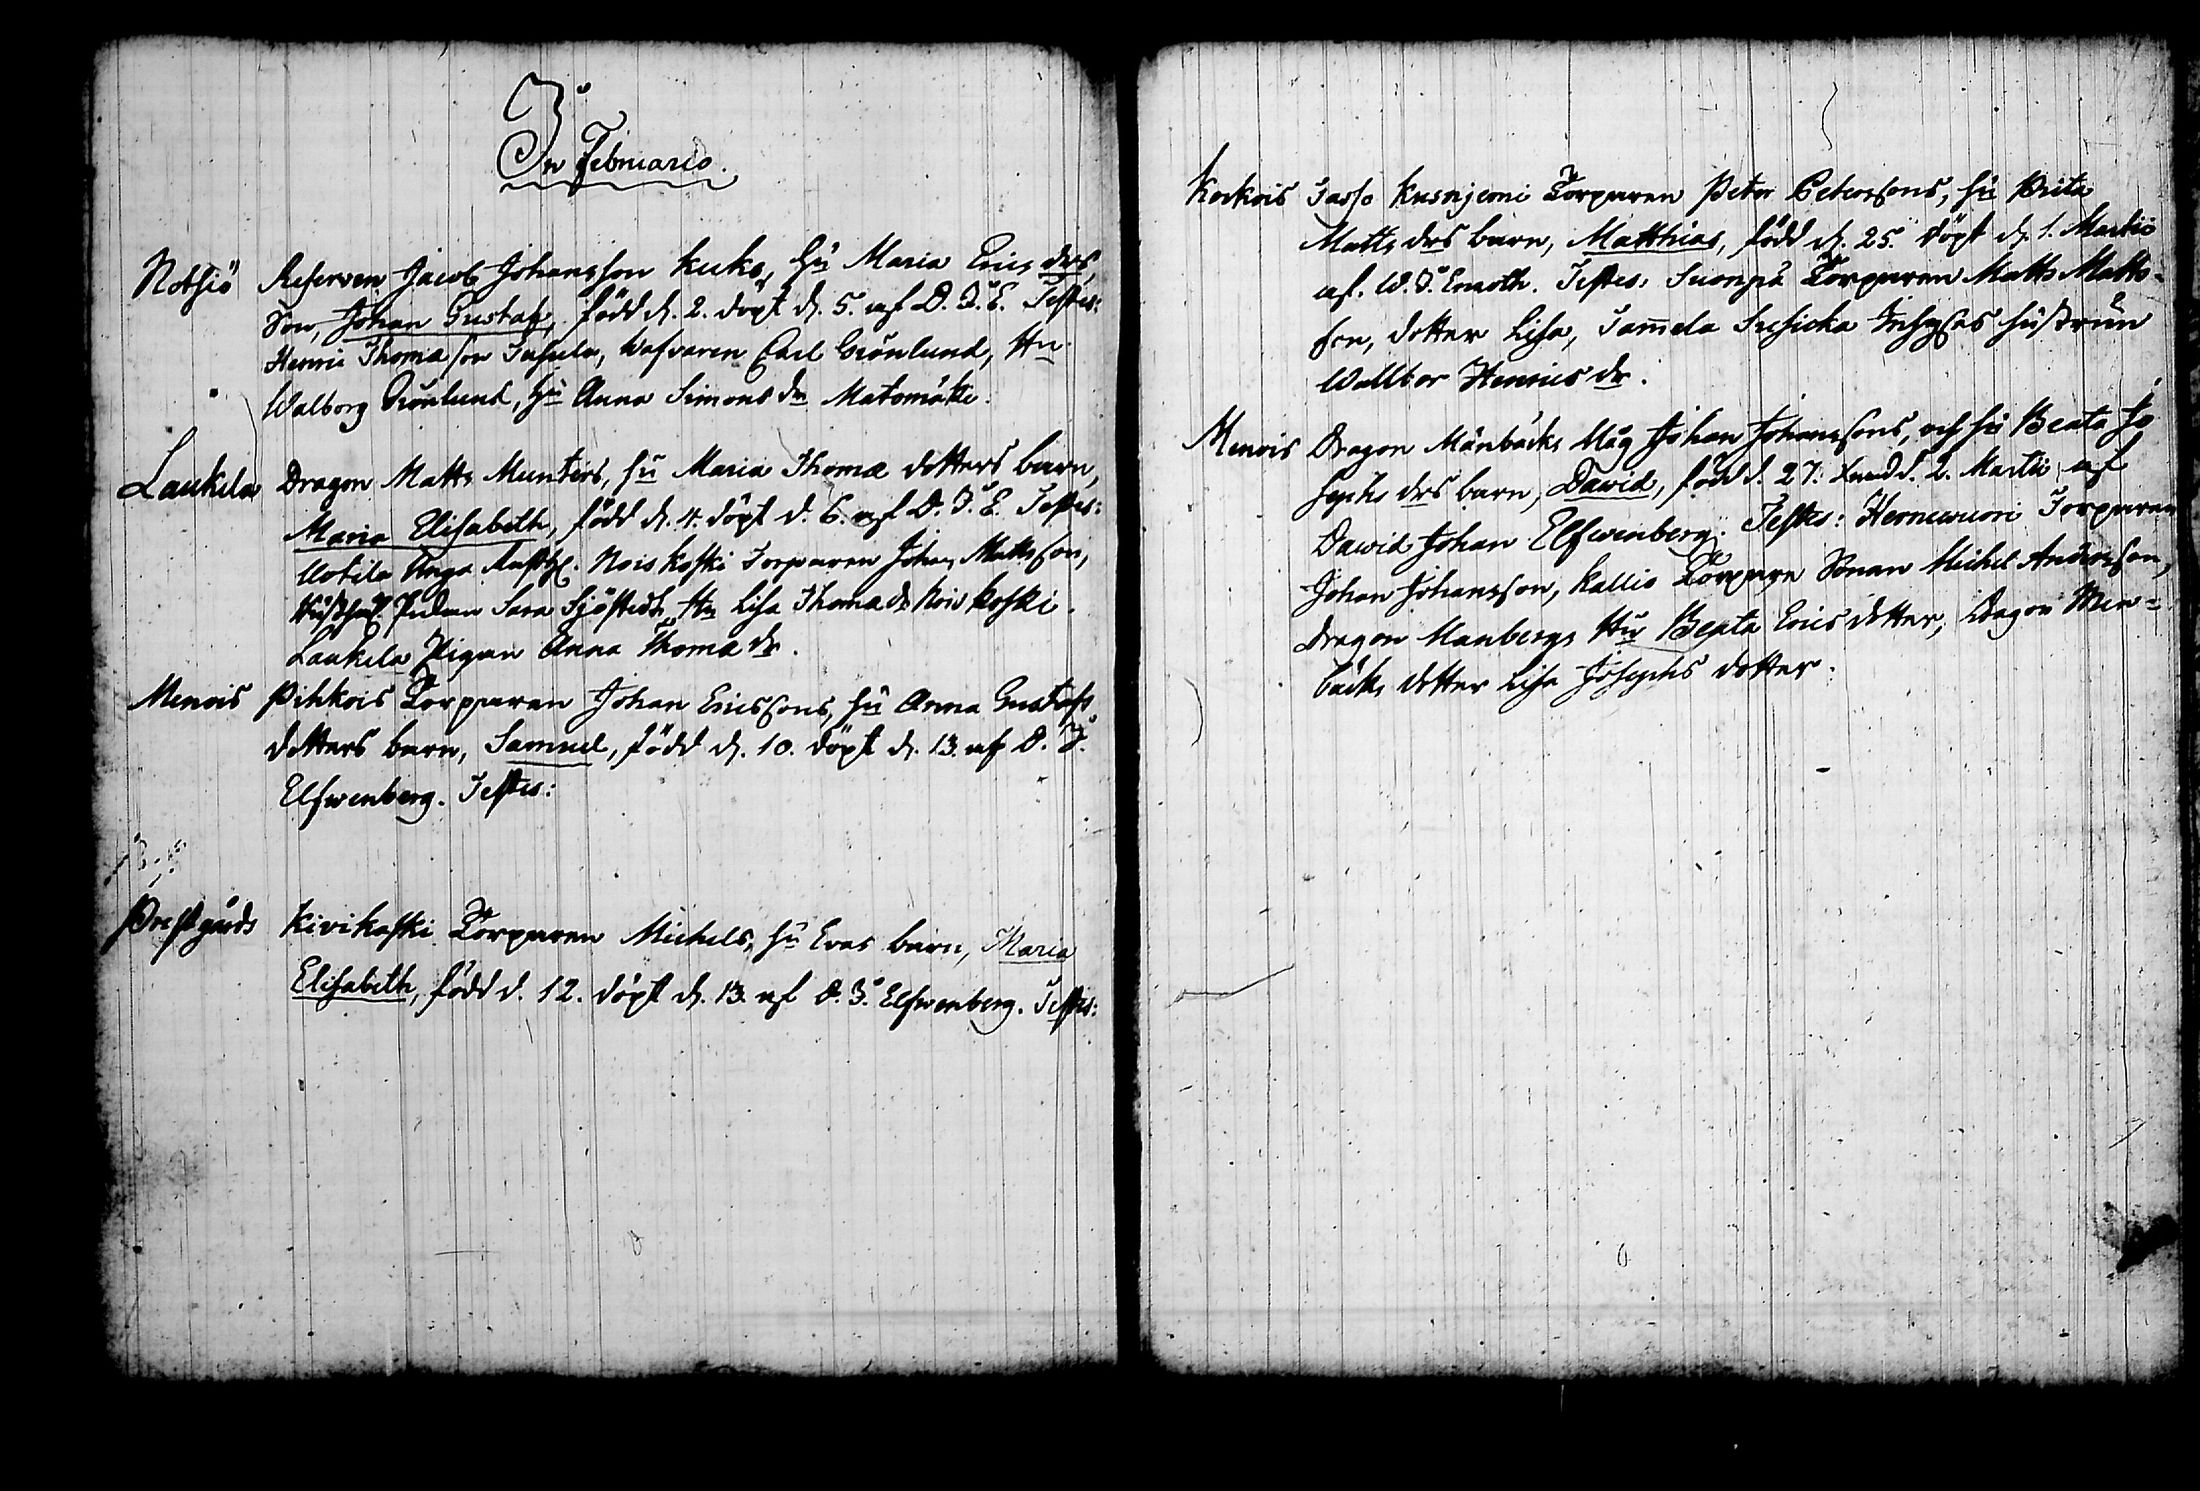 In Februario.
Notsiö Reserven Jacob Johansson Kuko, hu Maria Erics drs,
Son, Johan Gustaf, född d. 2. döpt d. 5. af D. J. E. Testes:
Henric Thomasson Suhula, Carl Grönlund, Hu
Walborg Grönlund, hu Anna Simons dr Matomäki.
Laukela Dragon Matts Munters, hu Maria Thomæ dotters barn,
Maria Elisabeth, född d. 4. döpt d. 6. af D. J. E. Testes:
Noiskoski Torparen Johan Mattsson,
Sara Sjöstedt, Hu Lisa Thomæ dr Noiskoski.
Laukela Pigan Anna Thomæ dr.
Menois Pihkois Torparen Johan Ericssons, hu Anna Gustafs
dotters barn, Samuel, född d. 10. döpt d. 13. af D. J.
Elfwenberg. Testes:
Prestgårds Kivikoski Torparen Michels, hu Evas barn, Maria
Elisabeth, född d. 12. döpt d. 13. af D. J. Elfwenberg. Testes:
Korkois Torparen Peter Peterssons, hu Brita
Matts drs barn, Matthias, född d. 25. döpt d. 1. Martii
af. Testes: Suonpä Torparen Matts Matts-
son, dotter Lisa, Sammela hustrun
Walbor Henrics dr.
Menois Dragon Månbäcks Måg Johan Johanssons, och hu Beata Jo
sephs drs barn, Dawid, född d. 27. d. 2. Martii af
Dawid Johan Elfwenberg. Testes: Hernewuori Torparen
Johan Johansson, Kallio Torpare Sonen Michel Andersson,
Dragon Manbergs Hu Beata Erics dotter, Dragon Mån-
bäcks dotter Lisa Josephs dotter.